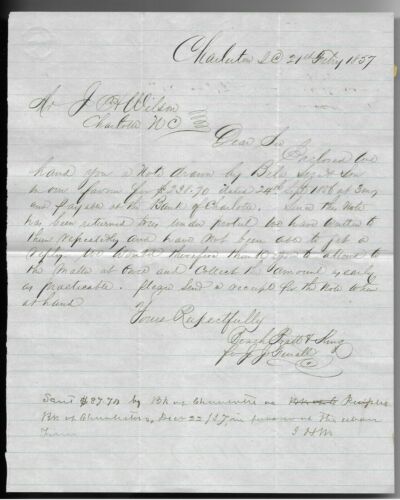 Charleston SC 21st Feby 1857
Mr J H Wilson
Charlotte NC
Dear Sir
Enclosed we
hand you a Note drawn by
in our favor for $238.70 dated 24th Sept 1856 at 3 m
and payable at the Bank of Charlotte. Since the Note
has been returned to us under protest we have written to
them repeatedly and have not been able to get a
reply. We would therefore thank you to attend to
the matter at once and collect the amount as early
as practicable. Please send a receipt for the Note to
at hand
Yours Respectfully
Gough Pratt & King
Sent by Bk of Charlotte on
Bk of Charleston, Decr 22/57, in the above
J H W